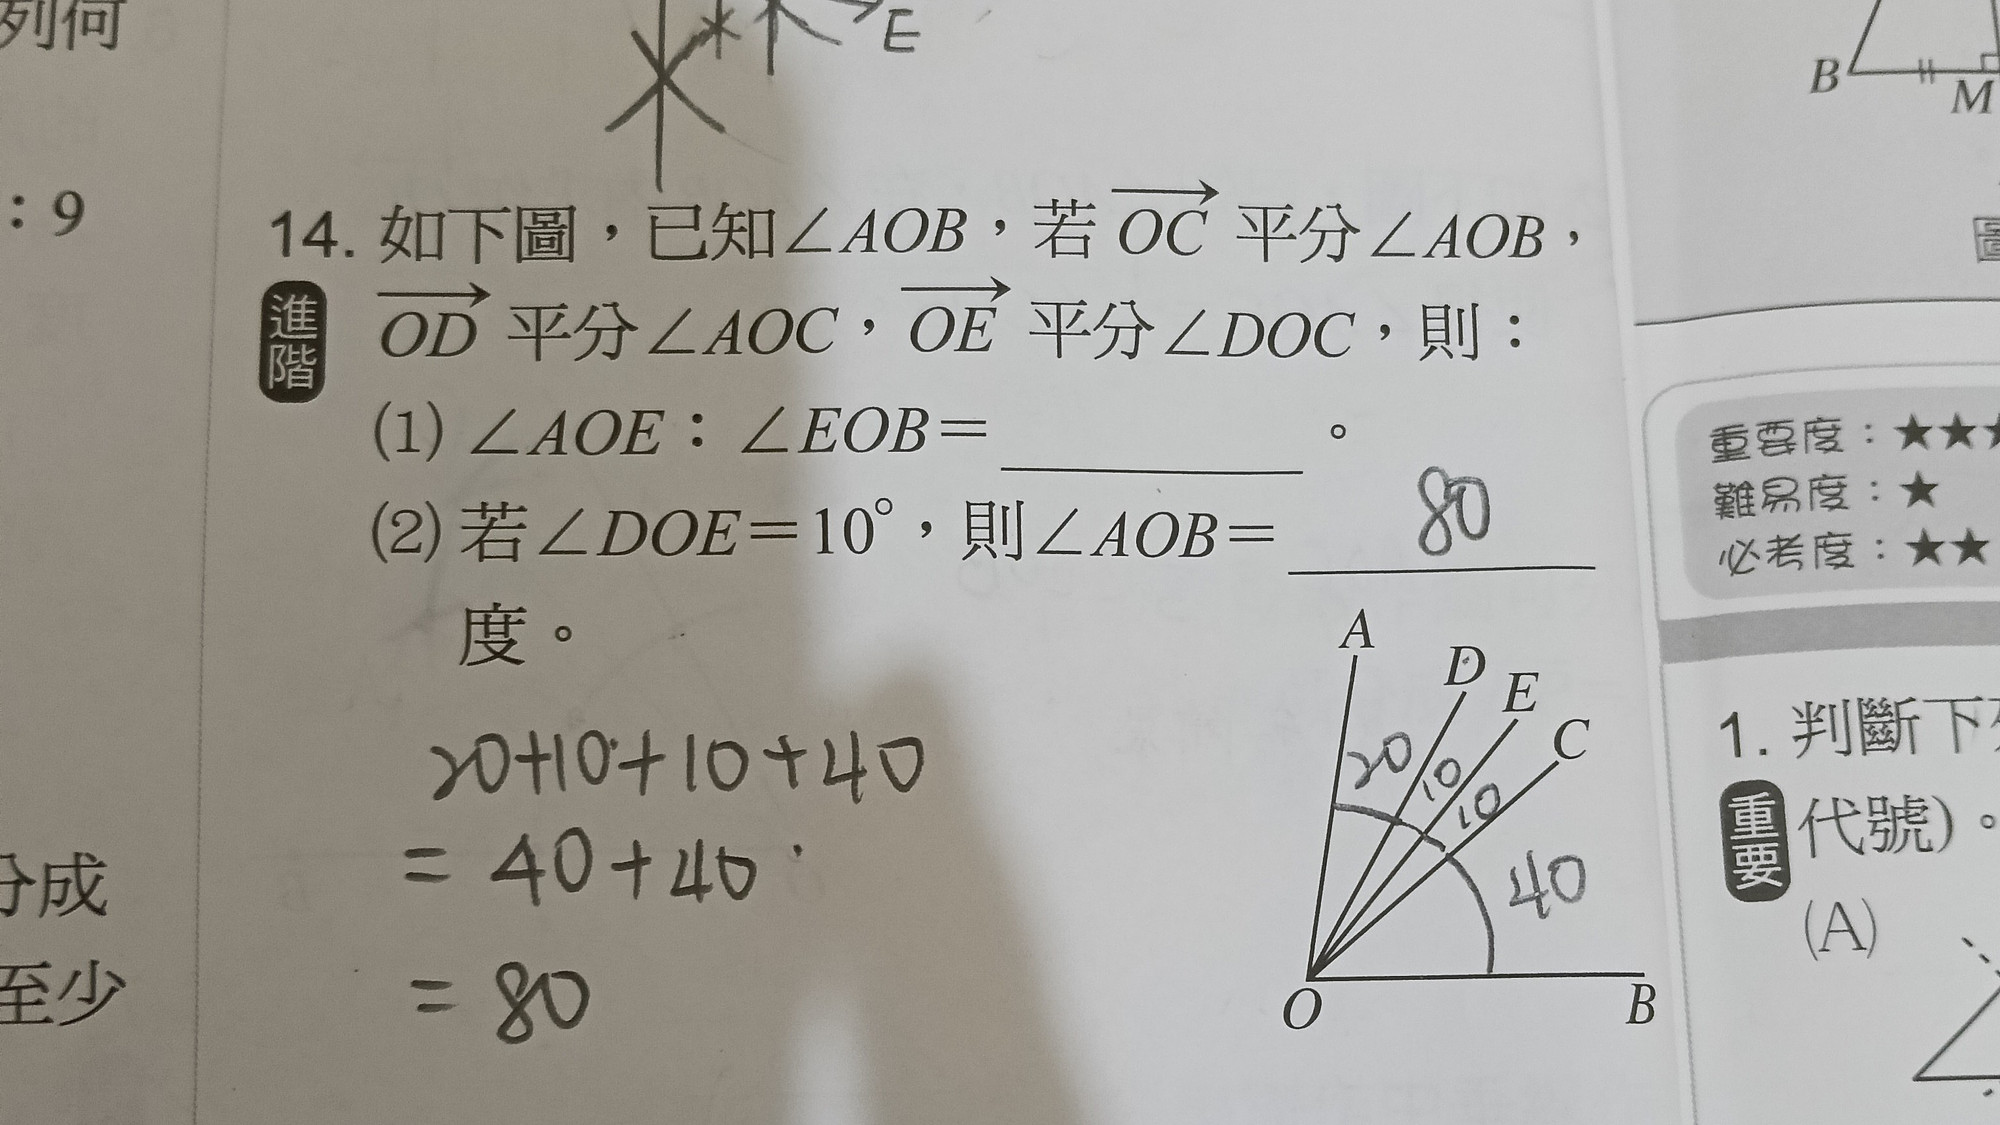 列何
E
B
M
：9
14. 如下圖，已知∠AOB，若OC平分∠AOB，
進階
OD平分∠AOC，OE平分∠DOC，則：
(1) ∠AOE：∠EOB＝______。
(2) 若∠DOE＝10°，則∠AOB＝ 80
度。
20+10+10+40
= 40+40
= 80
A
D
E
C
20
10
10
40
O
B
分成
至少
重要度：★★★
難易度：★
必考度：★★
1. 判斷下
重要
代號)。
(A)